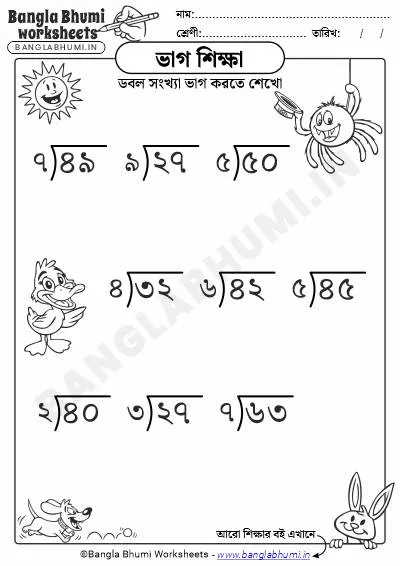 Bangla Bhumi
worksheets
BANGLABHUMI.IN
নাম:
শ্রেণী: তারিখ: / /
ভাগ শিক্ষা
ডবল সংখ্যা ভাগ করতে শেখো
৭)৪৯ ৯)২৭ ৫)৫০
৪)৩২ ৬)৪২ ৫)৪৫
২)৪০ ৩)২৭ ৭)৬৩
BANGLABHUMI.IN
আরো শিক্ষার বই এখানে
©Bangla Bhumi Worksheets - www.banglabhumi.in